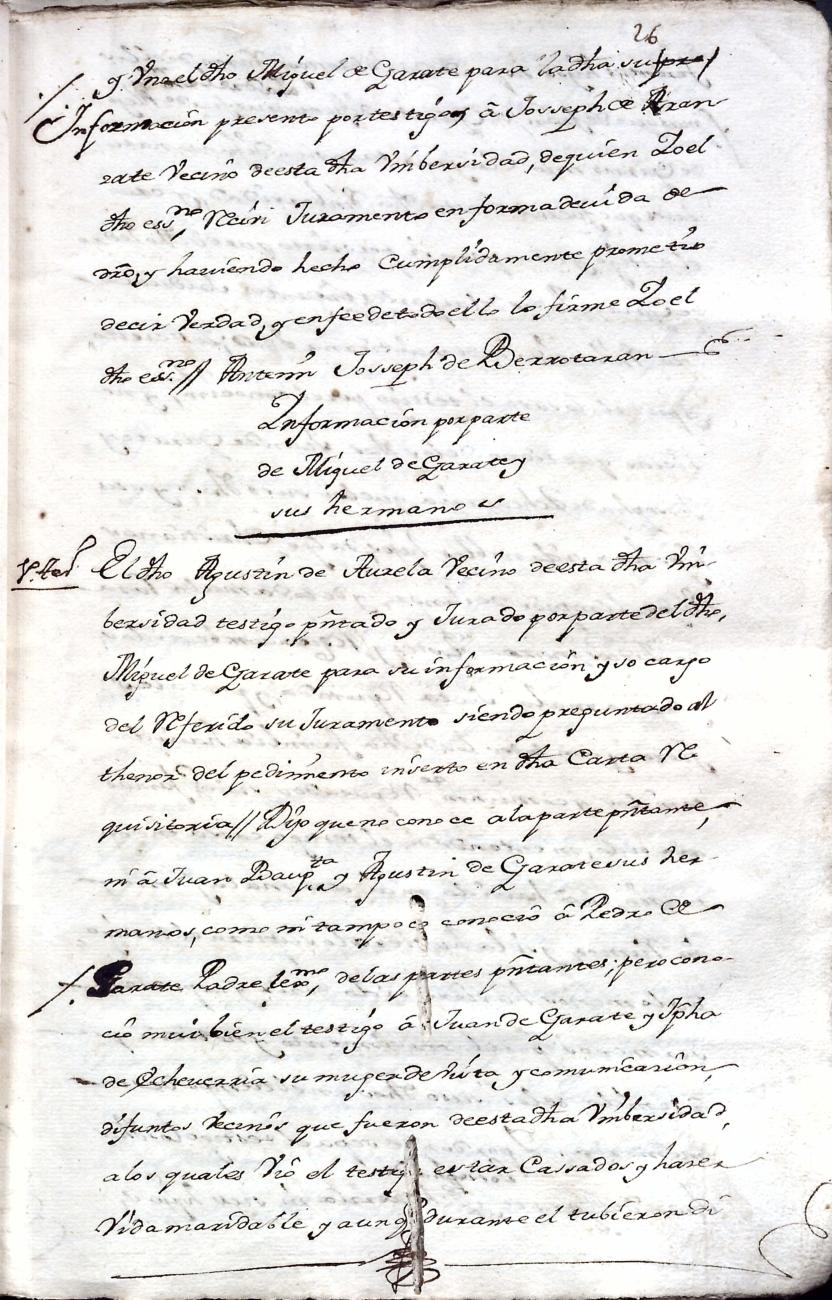 26
y Vno el dho Miguel de Garate para la dha su
Informacion presento por testigo, â Josseph de Aran
zate Vecino de esta dha Vniversidad, de quien Yo el
dho ess.no Reciui Juramento en forma devida de
dro, y haviendo hecho Cumplidamente prometio
decir Verdad, y en fee de todo ello lo firme Yo el
dho ess.no // Antemi Josseph de Berrotaran
Informacion por parte
de Miguel de Garate y
sus hermanos
El dho Agustin de Aurela Vecino de esta dha Vni-
bersidad testigo pñtado y Jurado por parte del dho,
Miguel de Garate para su informacion y so cargo
del Referido su Juramento siendo preguntado al
thenor del pedimento inserto en dha Carta Re
quisitoria // Dijo que no conoce a la parte pñtante,
ni â Juan Baup.ta y Agustin de Garate sus her-
manos, como ni tampoco conocio â Pedro de
Garate Padre lexmo, de las partes pñtantes; pero cono-
cio mui bien el testigo â Juan de Garate y Jpha
de Echeverria su muger de vista y comunicacion,
difuntos Vecinos que fueron de esta dha Vnibersidad,
a los quales Vio el testigo estar Cassados y hacer
Vida maridable y aunq durante el tubieron di